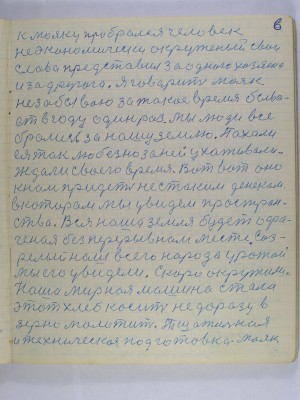 6
к маяку пробрался человек
не экономически окруженый свои
слова представил за одного хозяина
и за другого. Я говорит маяк
незабываю за такое время быва-
ет в году один раз мы люди все
брались за нашу землю. Пахали
ея так любезно за ней ухаживали
ждали своего время. Вот вот оно
к нам придет нестаким денеком.
в котором мы увидем простран-
ства. Вся наша земля будет одра-
геная без перерывнам месте. Соз-
релый наш всего народа урожай
мы его увидели. Скоро окружим.
Наша мирная машина стала
этот хлеб косить не до разу в
зерно молотить. Тщательная
и техническая подготовка. маяк